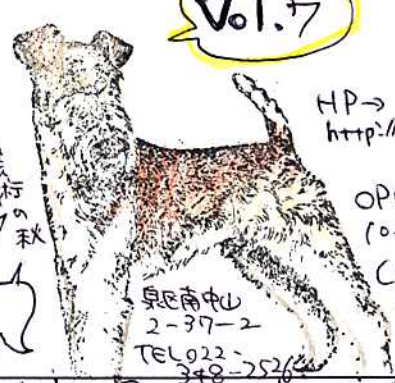 Vol.7
HP→
http://
行
の
秋
OP
10
C
泉区南中山
2-37-2
TEL022-
348-2526